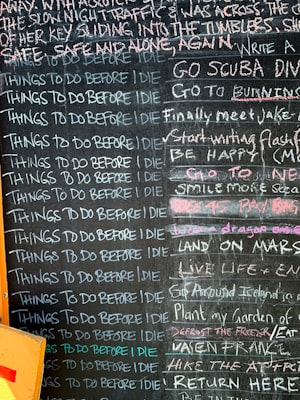 AWAY. WITH
THE SLOW NIGHT TRAFFIC & WAS ACROSS. THE
OF HER KEY SLIDING INTO THE TUMBLERS. SH
SAFE. SAFE AND ALONE, AGAIN. WRITE A
THINGS TO DO BEFORE I DIE
THINGS TO DO BEFORE I DIE GO SCUBA DIV
THINGS TO DO BEFORE I DIE GO TO BURNING
THINGS TO DO BEFORE I DIE Finally meet Jake
THINGS TO DO BEFORE I DIE Start writing flash
THINGS TO DO BEFORE I DIE BE HAPPY (M
THINGS TO DO BEFORE I DIE GO TO NE
THINGS TO DO BEFORE I DIE SMILE MORE
THINGS TO DO BEFORE I DIE PAY
THINGS TO DO BEFORE I DIE dragon
THINGS TO DO BEFORE I DIE LAND ON MARS
THINGS TO DO BEFORE I DIE LIVE LIFE + EN
THINGS TO DO BEFORE I DIE Go Around Iceland in
THINGS TO DO BEFORE I DIE Plant my Garden of
THINGS TO DO BEFORE I DIE DEFROST THE FREEZER/EAT
GS TO DO BEFORE I DIE FRANCE
TO DO BEFORE I DIE HIKE THE AT + PC
TO DO BEFORE I DIE RETURN HERE
BE IN THE